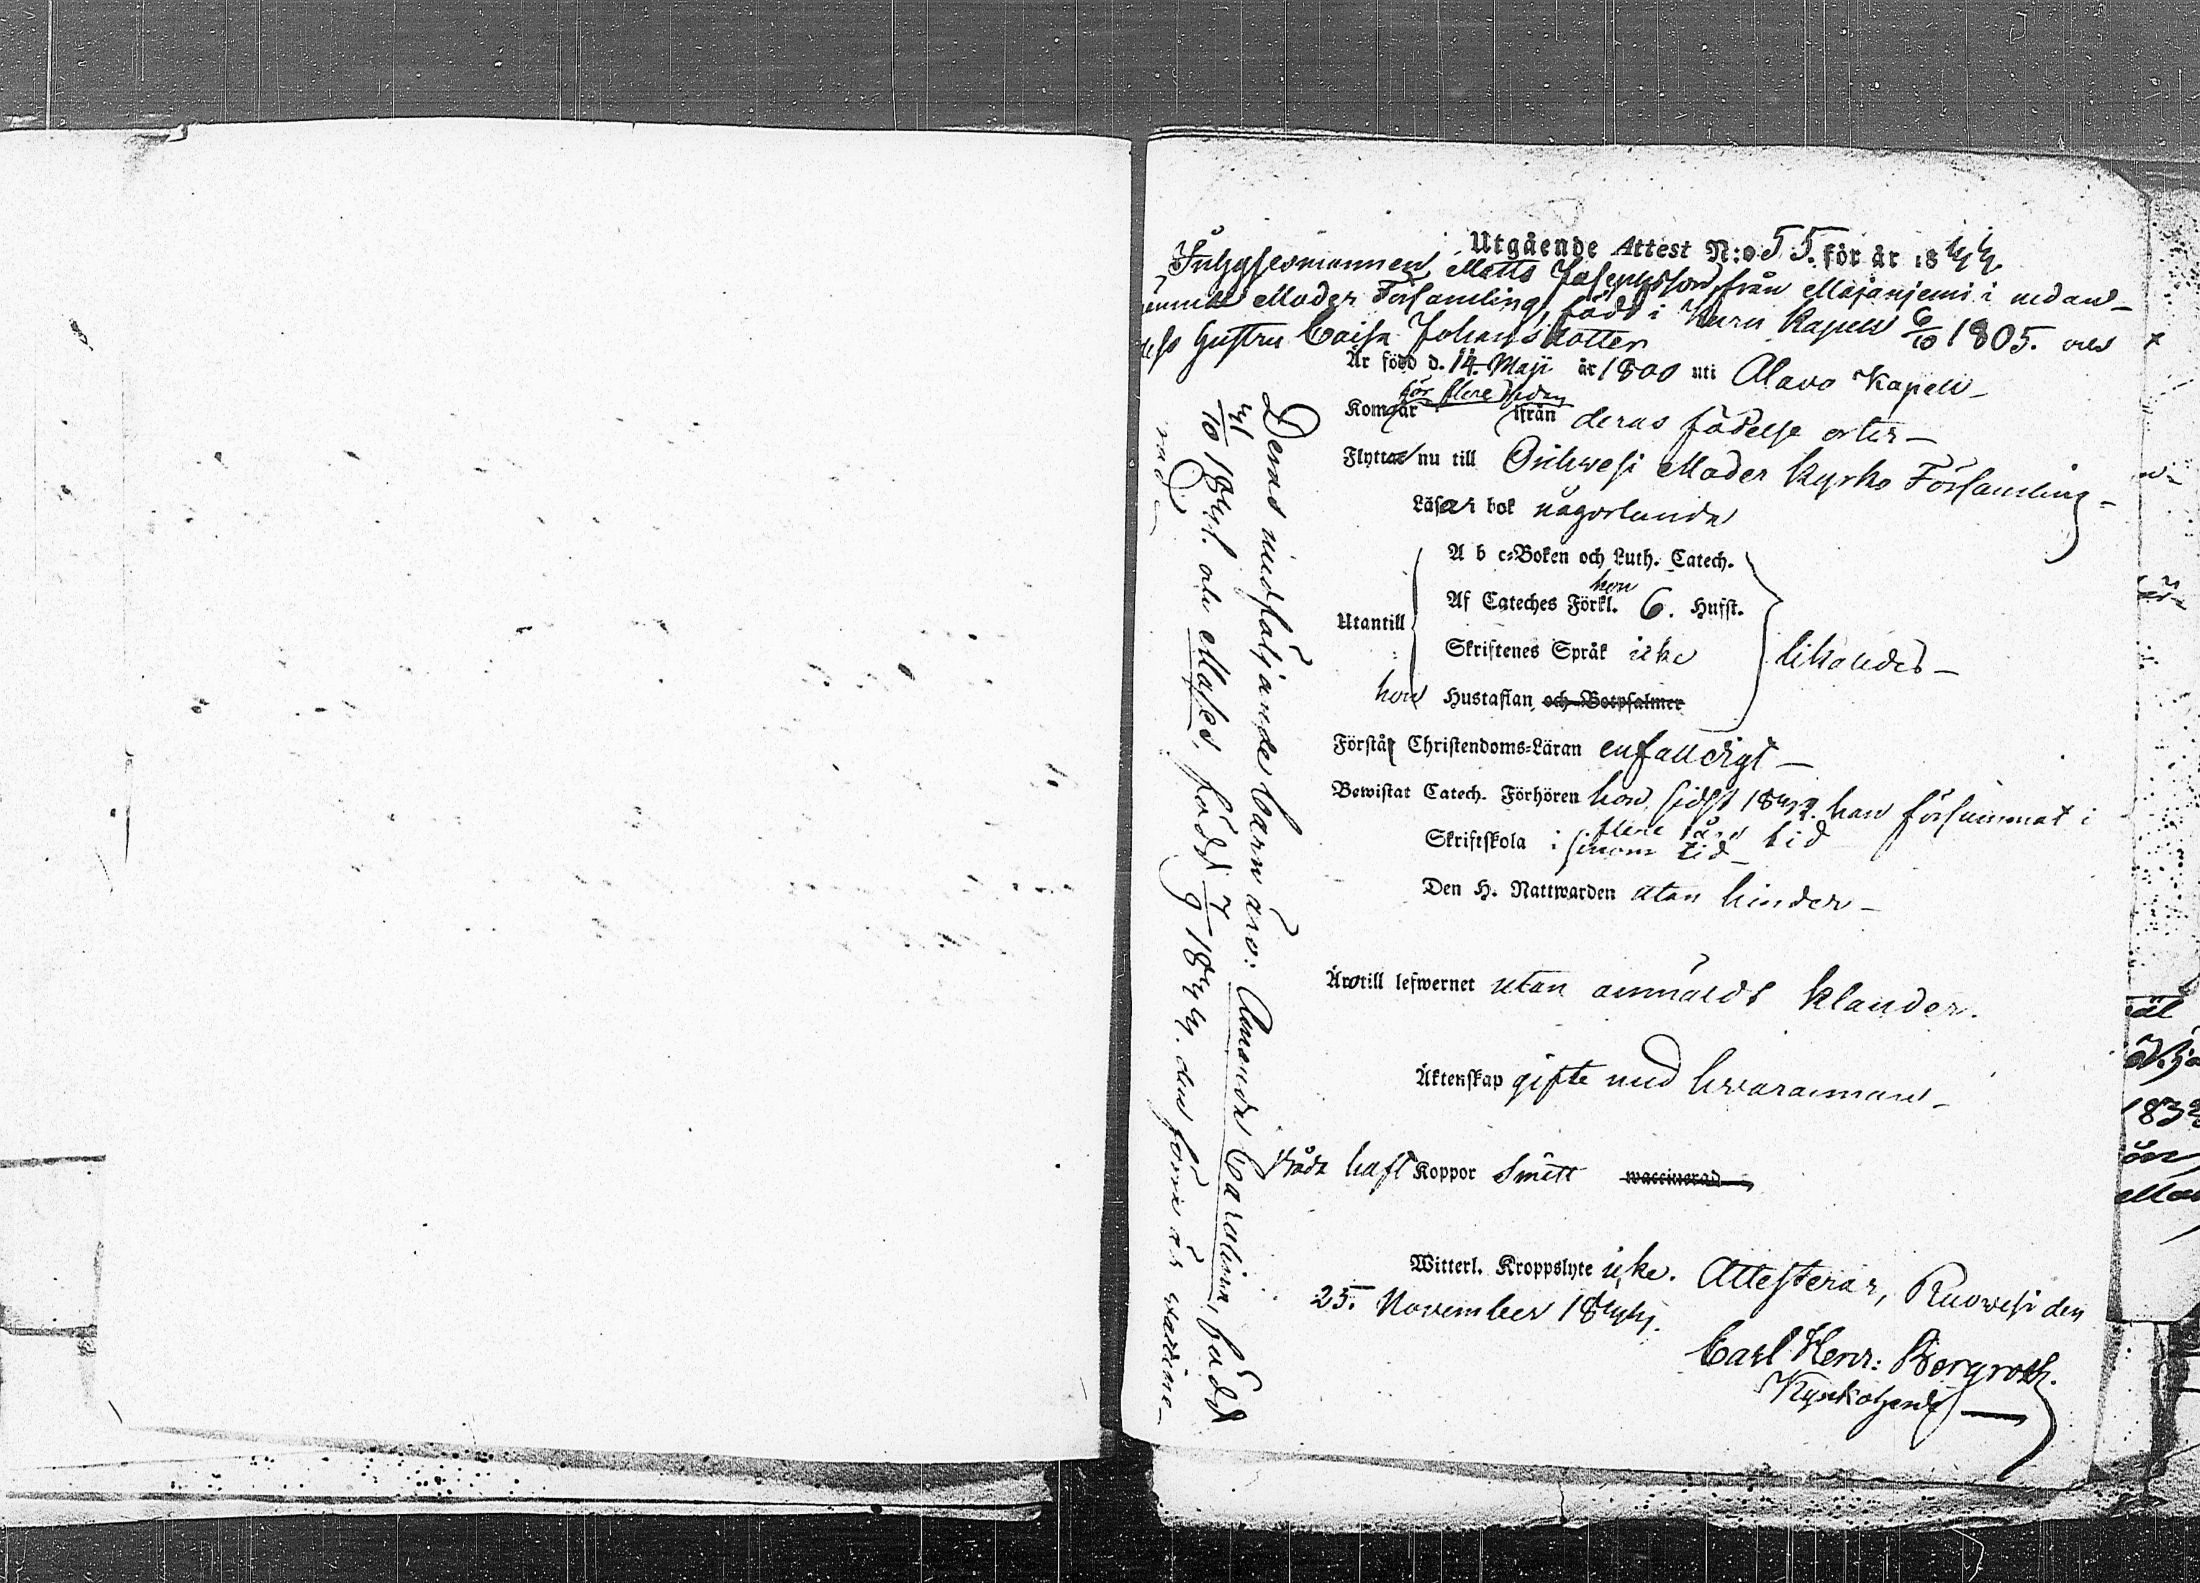 Utgående Attest N:o 55. för år 1844.
Inhysesmannen Matts Josephsson, från Majaniemi i nedan-
Moder Församling, född i Kuru Kapell 6/10 1805. och
Hustru Caisa Johansdotter
Är född d. 14. Maji år 1800 uti Alavo Kapell
för flere sedan
Kom år ifrån deras födelse orter
Flytta nu till Orihwesi Moder kyrko Församling
Läsa i bok någorlunda
A b c-Boken och Luth. Catech.
hon
Af Cateches Förkl. 6. Hufst.
Utantill
Skriftenes Språk icke
likaledes
hon Hustaflan och Botpsalmer
Förstå Christendoms-Läran enfalldigt
Bewistat Catech. Förhören hon sidst 1842. han försummat i
flere års tid
Skriftskola i sinom tid
Den H. Nattwarden utan hinder
Äro till lefwernet utan anmäldt klander.
Äktenskap gifte med hwarannan
Båda haft Koppor Smitt waccinerad
Witterl. Kroppslyte icke. Attesterar, Ruowesi den
25. November 1844.
Carl Henr: Bergroth.
Kyrkoherde
Deras medföljande barn äro: Amanda Carolina, född
4/10 1841. och Moses, född 7/9 1844. den förra är vaccine-
rad